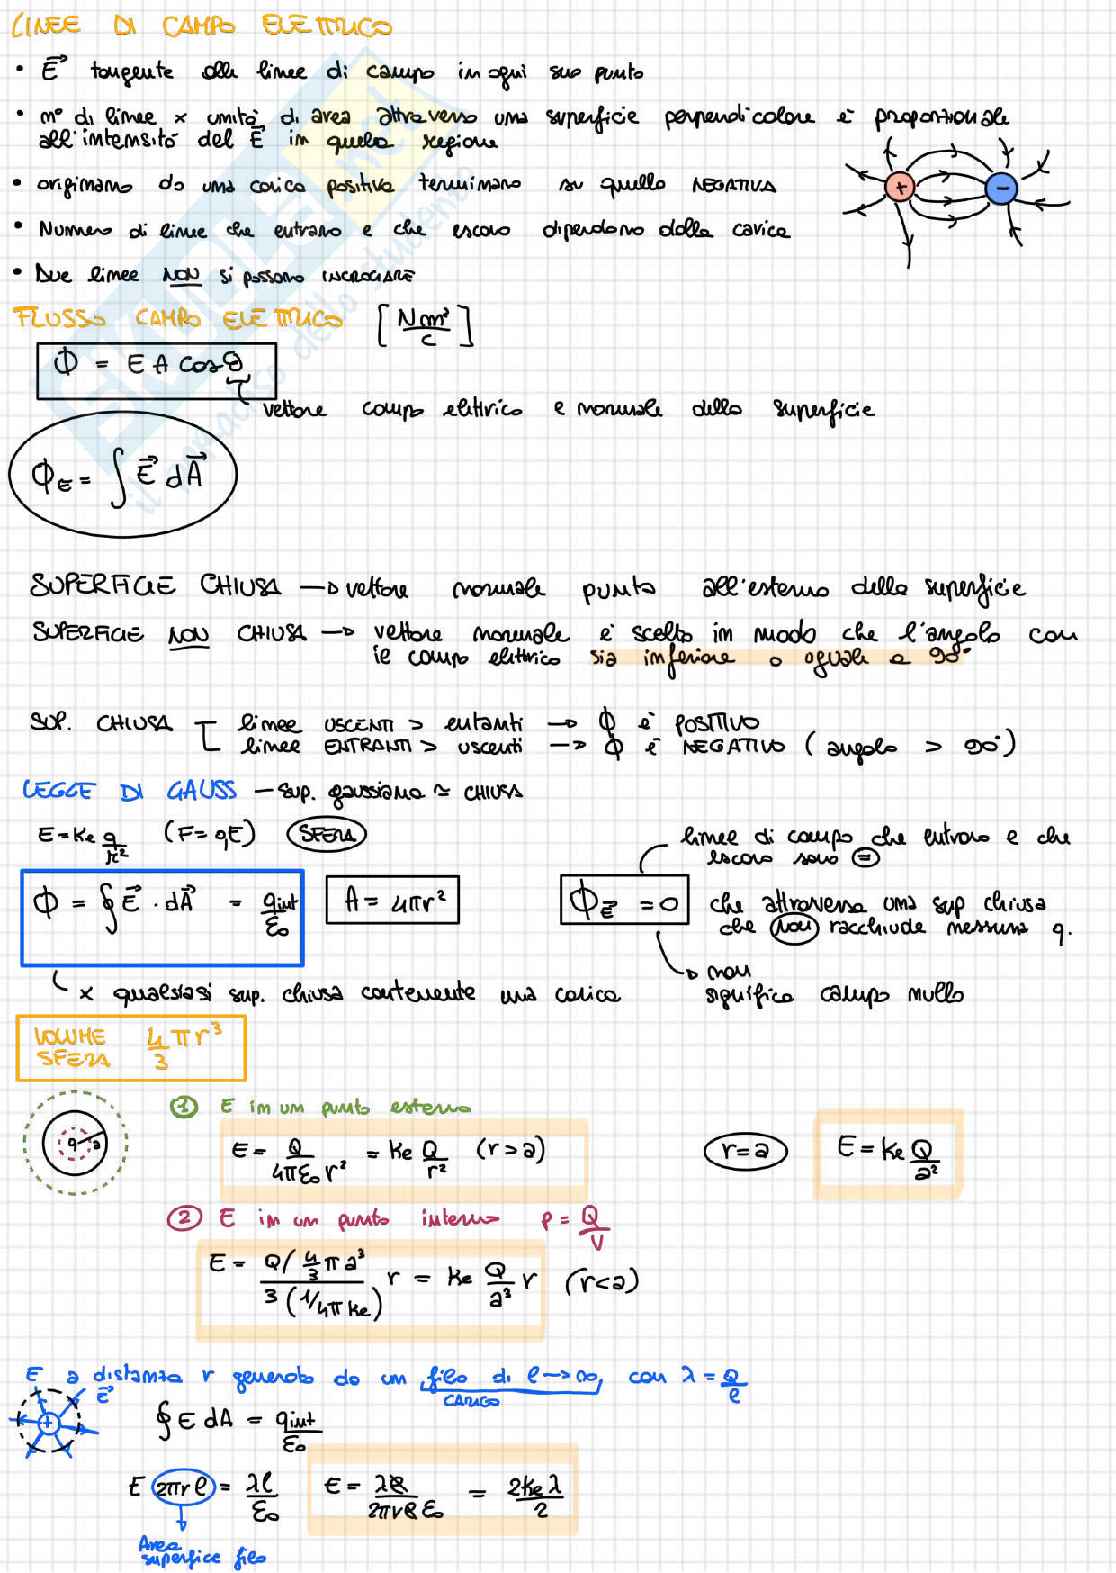 LINEE DI CAMPO ELETTRICO
• E⃗ tangente alle linee di campo in ogni suo punto
• n° di linee x unità di area attraverso una superficie perpendicolare è proporzionale
all'intensità del E⃗ in quella regione
• originano da una carica positiva terminano su quella NEGATIVA
+ −
• Numero di linee che entrano e che escono dipendono dalla carica
• Due linee NON si possono INCROCIARE
FLUSSO CAMPO ELETTRICO [Nm²/C]
Φ = E A cosθ
vettore campo elettrico e normale della superficie
Φ_E = ∫ E⃗ dA⃗
SUPERFICIE CHIUSA → vettore normale punta all'esterno della superficie
SUPERFICIE NON CHIUSA → vettore normale è scelto in modo che l'angolo con
il campo elettrico sia inferiore o uguale a 90°
SUP. CHIUSA linee USCENTI > entranti → Φ è POSITIVO
linee ENTRANTI > uscenti → Φ è NEGATIVO (angolo > 90°)
LEGGE DI GAUSS – sup. gaussiana ≃ CHIUSA
E = Ke q/r² (F = qE) SFERA
linee di campo che entrano e che
escono sono =
Φ = ∮ E⃗ · dA⃗ = qint/ε₀ A = 4πr² Φ_E⃗ = 0 che attraversa una sup chiusa
che NON racchiude nessuna q.
→ non
x qualsiasi sup. chiusa contenente una carica significa campo nullo
VOLUME SFERA 4/3 πr³
① E in un punto esterno
q a
E = Q/4πε₀r² = Ke Q/r² (r > a) r = a E = Ke Q/a²
② E in un punto interno ρ = Q/V
E = Q/(4/3 πa³) / 3(1/4πKe) r = Ke Q/a³ r (r < a)
E a distanza r generato da un filo di l → ∞, con λ = Q/l
E⃗ CARICO
+ ∮ E dA = qint/ε₀
E 2πrl = λl/ε₀ E = λl/2πrlε₀ = 2Keλ/2
Area
superfice filo